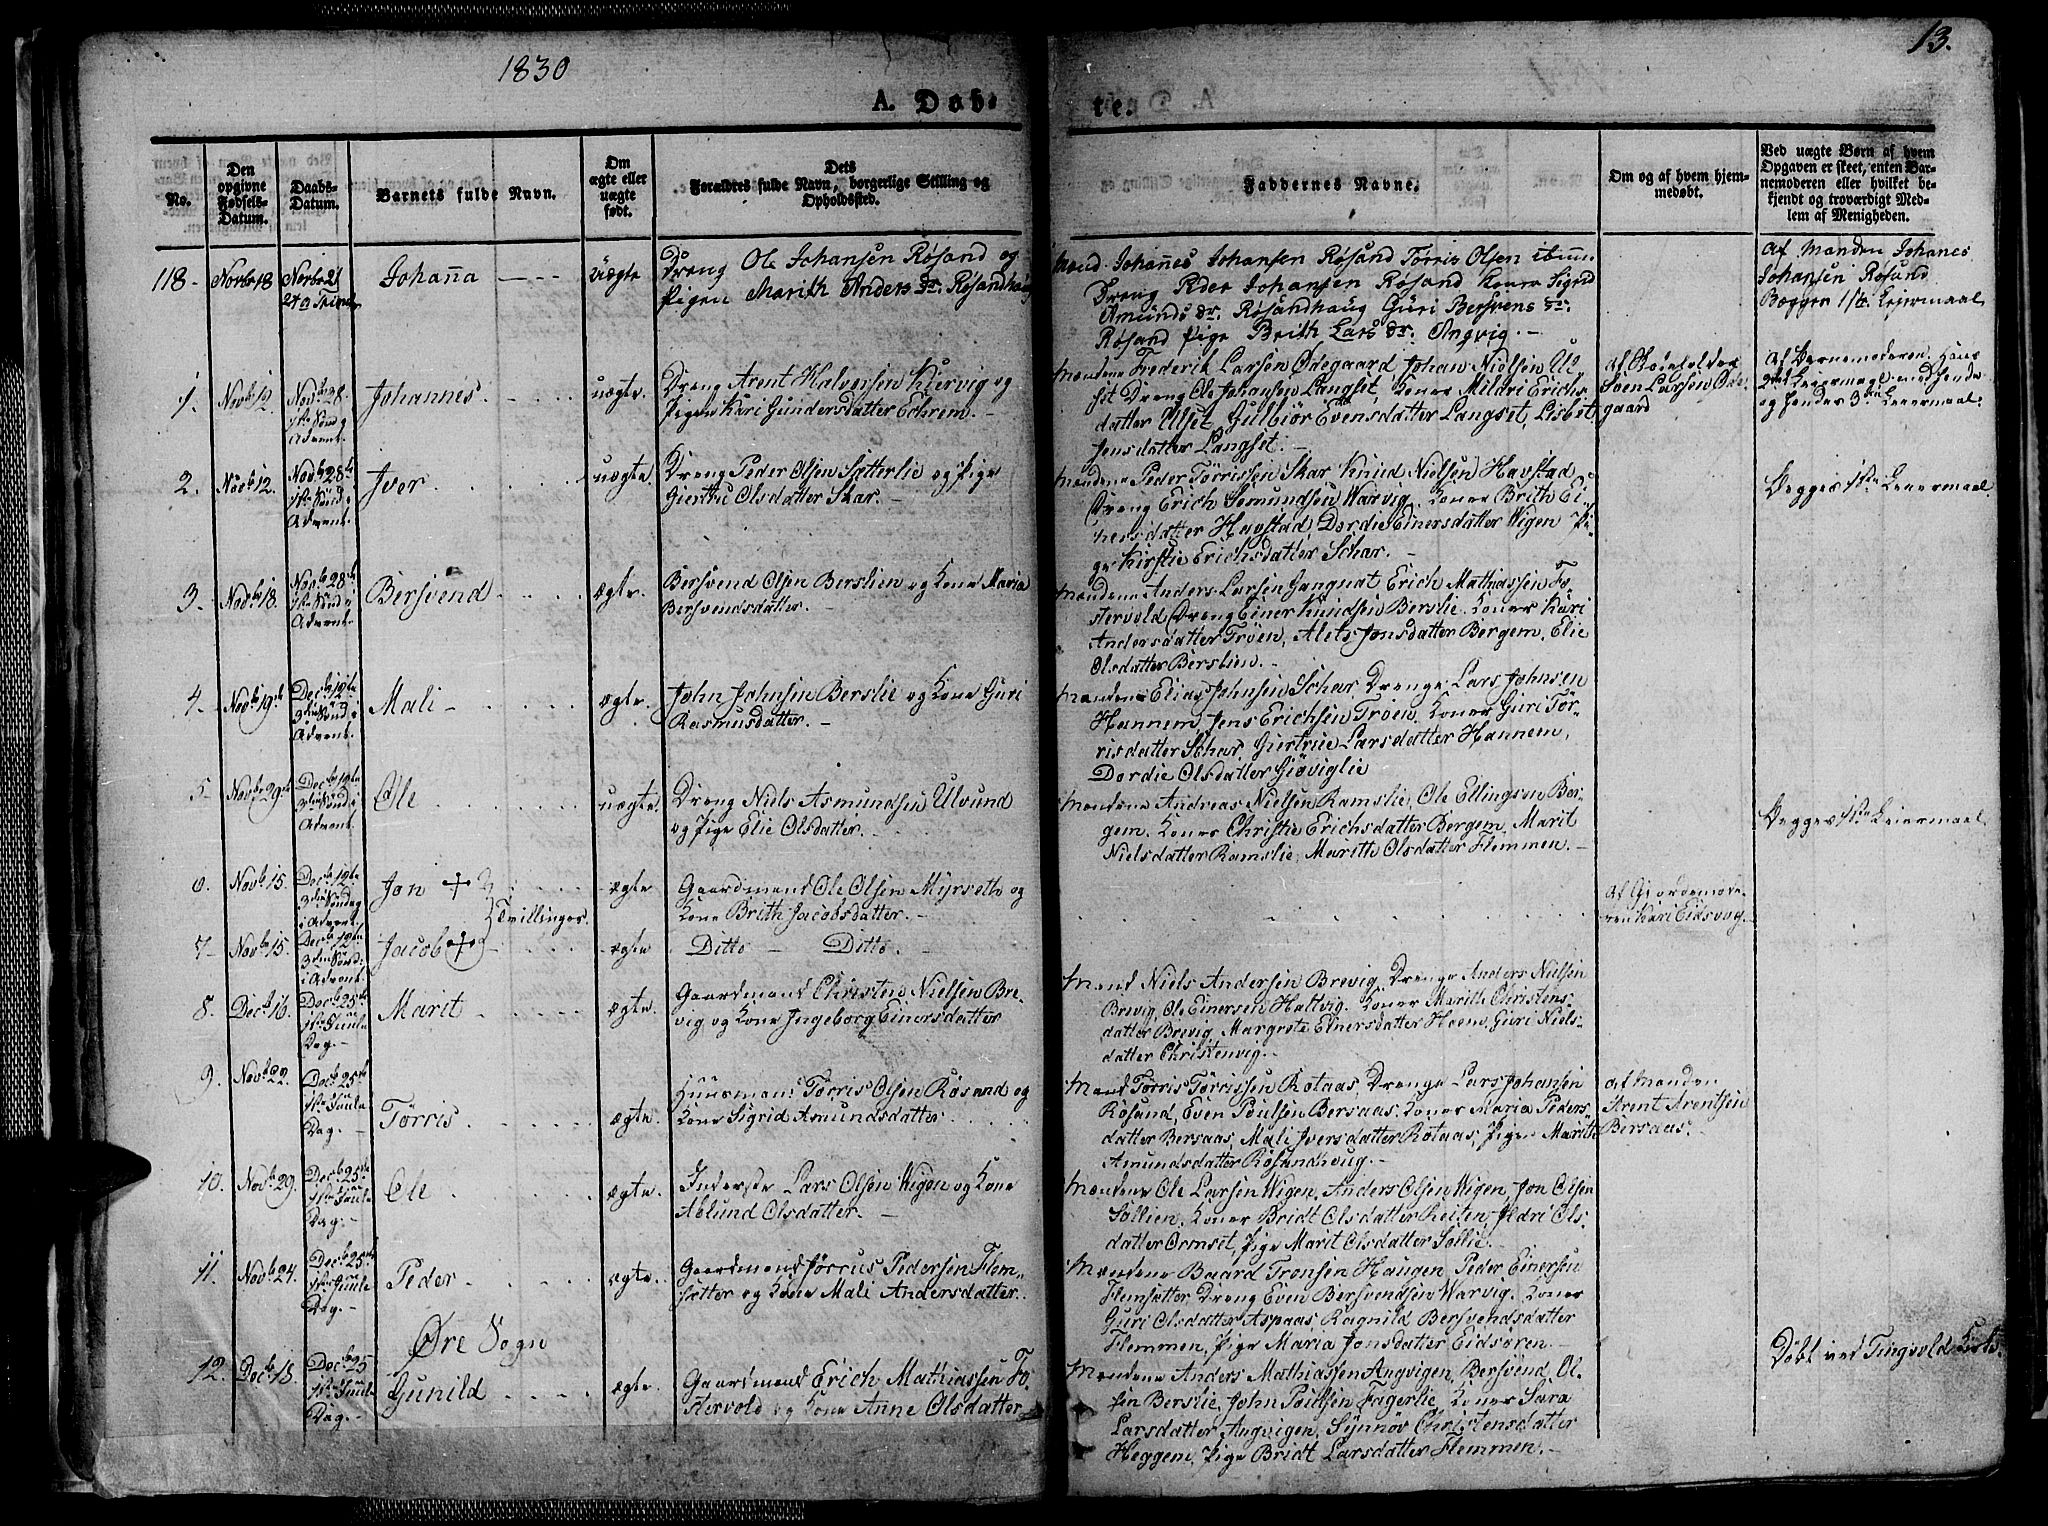 1830
13.
A. Døb-
te.
No.
Den
opgivne
Fødsels-
Datum.
Daabs-
Datum.
Barnets fulde Navn.
Om
ægte eller
uægte
født.
Dets
Forældres fulde Navn, borgerlige Stilling og
Opholdssted.
Faddernes Navne.
Om og af hvem hjem-
medøbt.
Ved uægte Børn af hvem
Opgaven er skeet, enten Bar-
nemoderen eller hvilket be-
kjendt og troværdigt Med-
lem af Menigheden.
118 - Novbr 18 Novbr 21 Johanna uægte
Dreng Ole Johansen Røsand og
Pigen Marith Anders dr. Røsandhaug
Mænd Johannes Johansen Røsand Törris Olsen ibm.
Dreng Peder Johansen Røsand Koner Sigrid
Amunds dr. Røsandhaug Guri Bersvens dr.
Røsand Pige Brith Lars dr. Angvig. -
Af Manden Johanes
Johansen Røsand
Begges 1ste Leiermaal
1. Novb. 12. Novb. 28. Johannes. uægte.
1ste Sønd. i
Advent.
Dreng Arent Halvorsen Kiervig og
Pigen Kari Gundersdatter Echrem. -
Mændene Frederik Larsen Ødegaard Johan Nielsen Ul-
set Dreng Ole Johansen Langset, Koner Mildri Erichs-
datter Ulset, Gulbiör Evensdatter Langset, Lisbet
Jensdatter Langset. -
Sven Larsen Øde-
gaard
Af Barnemoderen. Hans
2det Leiermaal med hende
og hendes 3die Leiermaal.
2. Novb. 12. Novb. 28de Iver uægte.
1ste Sønd. i
Advent.
Dreng Peder Olsen Sætterlie og Pige
Giertru Olsdatter Skar. -
Mændene Peder Tørrissen Skar Knud Nielsen Havstad
Dreng Erich Semundsen Warvig. Koner Brith Ei-
nersdatter Havstad, Dordie Einersdatter Wigen Pi-
ge Kirstie Erichsdatter Schar. -
Begges 1ste Leiermaal
3. Novb. 18. Novb. 28de Bersvend ægte.
1ste Sønd. i
Advent.
Bersvend Olsen Berslien og Kone Maria
Bersvendsdatter. -
Mændene Anders Larsen Janquat Erich Mathiassen Fo-
stervold Dreng Einer Knudsen Berslie. Koner Kari
Andersdatter Trøen, Alets Jonsdatter Bergem, Elie
Olsdatter Berslien. -
4. Novb. 19de Decb. 12te Mali - ægte.
3die Sønd. i
Advent.
John Johnsen Berslie og Kone Guri
Rasmusdatter. -
Mændene Elias Johnsen Schar, Drenge Lars Johnsen
Hannem, Jens Erichsen Trøen. Koner Guri Tør-
risdatter Schar, Giertrue Larsdatter Hannem,
Dordie Olsdatter Giøviglie
5 Novb. 29de Decb. 12te Ole uægte.
3die Sønd. i
Advent.
Dreng Niels Asmundsen Ulvund
og Pige Elie Olsdatter.
Mændene Andreas Nielsen Ramslie, Ole Ellingsen Ber-
gem. Koner Christie Erichsdatter Bergem, Marit
Nielsdatter Ramslie, Marith Olsdatter Flemmen. -
Begges 1ste Leiermaal
6. Novb. 15. Decb. 12te Jon + ægte
Tvillinger.
3die Søndag
i Advent.
Gaardmand Ole Olsen Myrseth og
Kone Brith Jacobsdatter. -
Af Giordemode-
ren Kari Eidsvog.
7 - Novb. 15. Decb. 12te Jacob + ægte
3die Sønd.
i Advent.
Ditto - Ditto.
8. Decb. 16. Decb. 25de Marit ægte.
1ste Juule
Dag. -
Gaardmand Christen Nielsen Bre-
vig og Kone Ingeborg Einersdatter
Mænd Niels Andersen Brevig, Drenge Anders Nielsen
Brevig, Ole Einersen Haltvig. Koner Marith Christens-
datter Brevig Margrete Einersdatter Hoem, Guri Niels-
datter Christenvig. -
9. Novb. 22. Decb. 25de Tørris. ægte.
1ste Juule
Dag. -
Huusmand Tørris Olsen Røsand og
Kone Sigrid Amundsdatter
Mænd Tørris Tørrissen Rotaas, Drenge Lars Johansen
Røsand, Even Poulsen Bersaas. Koner Maria Peders-
datter Bersaas, Mali Iversdatter Rotaas, Pige Marith
Amundsdatter Røsandhoug. -
af Manden
Arent Arentsen
Bersaas. -
10. Novb. 29. Decb. 25de Ole ægte.
1ste Juule
Dag. -
Inderste Lars Olsen Wigen og Kone
Aslund Olsdatter. -
Mændene Ole Larsen Wigen, Anders Olsen Wigen, Jon Olsen
Sollien. Koner Bridt Olsdatter Reiten, Ildri Ols-
datter Ormset, Pige Marit Olsdatter Sollie. -
11. Novb. 24. Decb. 25de Peder ægte.
1ste Juule
Dag. -
Gaardmand Jørrus Pedersen Flem-
sætter og Kone Mali Andersdatter.
Mændene Baard Tronsen Haugen, Peder Einersen
Flemsætter Dreng Even Bersvendsen Warvig. Koner
Guri Olsdatter Aspaas Ragnild Bersvendsdatter
Flemmen, Pige Maria Jonsdatter Eidsøren. -
Øre Sogn
12. Decb. 18. Decb. 25 Gunild ægte.
1ste Juule
Dag. -
Gaardmand Erich Mathiassen Fo-
stervold og Kone Anne Olsdatter
Mændene Anders Mathiassen Angvigen, Bersvend Ol-
sen Berslie, John Poulsen Fagerlie, Koner Sara
Larsdatter Angvigen, Synnøv Christensdatter
Heggem, Pige Bridt Larsdatter Flemmen. -
Døbt ved Tingvold Kirke.